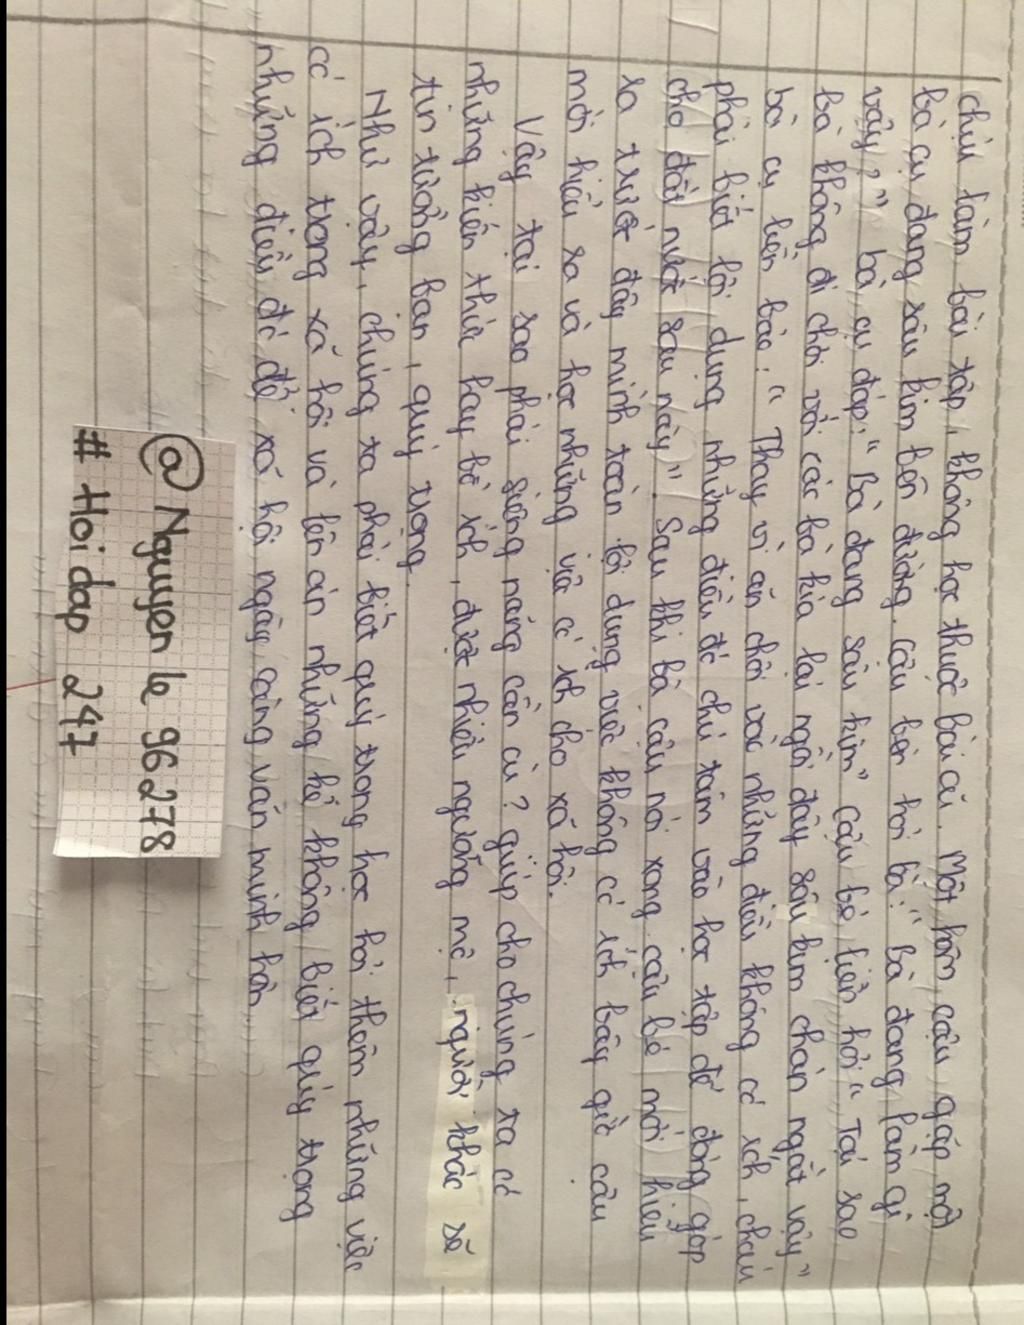 chịu làm bài tập, không học thuộc bài cũ. Một hôm cậu gặp một
bà cụ đang xâu kim bên đường. Cậu bèn hỏi bà: "Bà đang làm gì
vậy?" bà cụ đáp: "Bà đang xâu kim" cậu bé liền hỏi "Tại sao
bà không đi chơi với các bà kia lại ngồi đây xâu kim chán ngắt vậy"
bà cụ liền bảo: "Thay vì ăn chơi với những điều không có ích, cháu
phải biết lợi dụng những điều đó chú tâm vào học tập để đóng góp
cho đất nước sau này". Sau khi bà cậu nói xong cậu bé mới hiểu
ra trước đây mình toàn lợi dụng việc không có ích bây giờ cậu
mới hiểu ra và học những việc có ích cho xã hội.
Vậy tại sao phải siêng năng cần cù? giúp cho chúng ta có
những kiến thức hay bổ ích, được nhiều người ngưỡng mộ, người khác sẽ
tin tưởng bạn, quý trọng.
Như vậy, chúng ta phải biết quý trọng học hỏi thêm những việc
có ích trong xã hội và lên án những kẻ không biết quý trọng
những điều đó để xã hội ngày càng văn minh hơn.
@ Nguyen le 96278
# Hoi dap 247